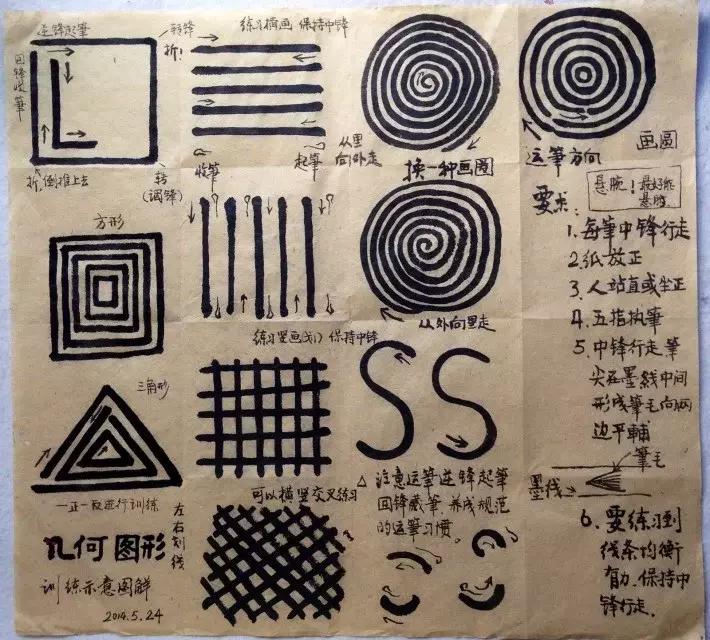 逆锋起筆
转锋
折!
回锋收筆
折,倒推上去
转
(调锋)
练习横画 保持中锋
收筆
起筆
从里
向外走
换一种画圈
运筆方向
画圆
方形
练习竖画(划) 保持中锋
从外向里走
悬腕!最好能
悬腕。
要求:
1.每筆中锋行走
2.纸放正
3.人站直或坐正
4.五指执筆
5.中锋行走筆
尖在墨线中间
形成筆毛向两
边平鋪
筆毛
墨线
6.要练习到
线条均衡
有力.保持中
锋行走.
三角形
一正一反进行训练
可以横竖交叉练习
左右划线
注意运筆逆锋起筆
回锋藏筆.养成规范
的运筆习惯。
几何图形
训练示意图解
2014.5.24